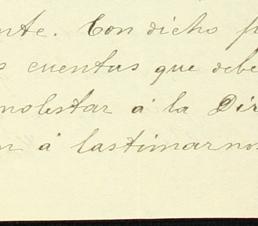 nte. Con dicho p
s cuentas que debe
molestar á la Dir
n á lastimarnos